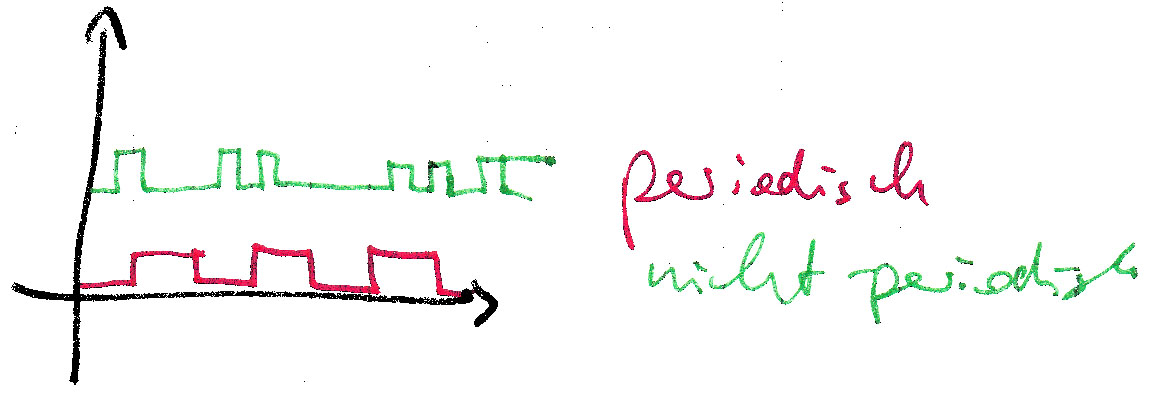 periodisch
nicht periodisch